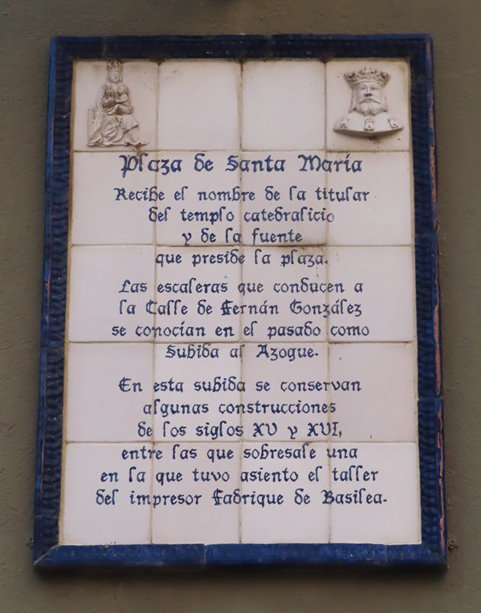 Plaza de Santa María
Recibe el nombre de la titular
del templo catedralicio
y de la fuente
que preside la plaza.
Las escaleras que conducen a
la Calle de Fernán González
se conocían en el pasado como
Subida al Azogue.
En esta subida se conservan
algunas construcciones
de los siglos XV y XVI,
entre las que sobresale una
en la que tuvo asiento el taller
del impresor Fadrique de Basilea.